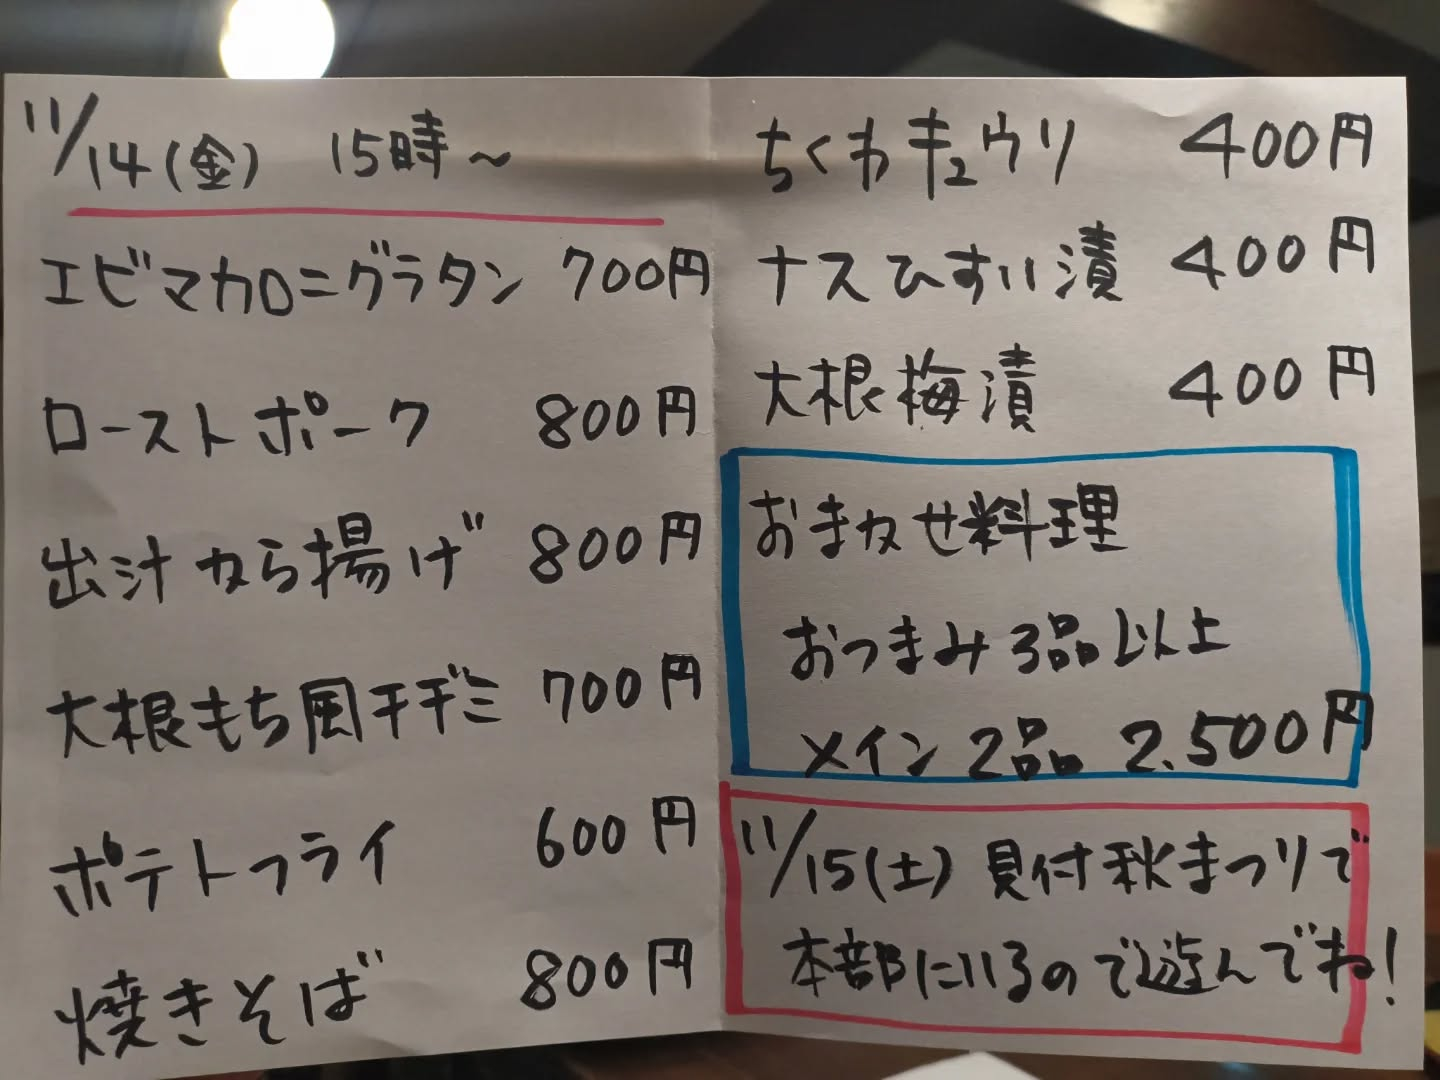 11/14(金) 15時~
エビマカロニグラタン 700円
ローストポーク 800円
出汁から揚げ 800円
大根もち風チヂミ 700円
ポテトフライ 600円
焼きそば 800円
ちくわキュウリ 400円
ナスひすい漬 400円
大根梅漬 400円
おまかせ料理
おつまみ3品以上
メイン2品 2.500円
11/15(土) 見付秋まつりで
本部にいるので遊んでね!